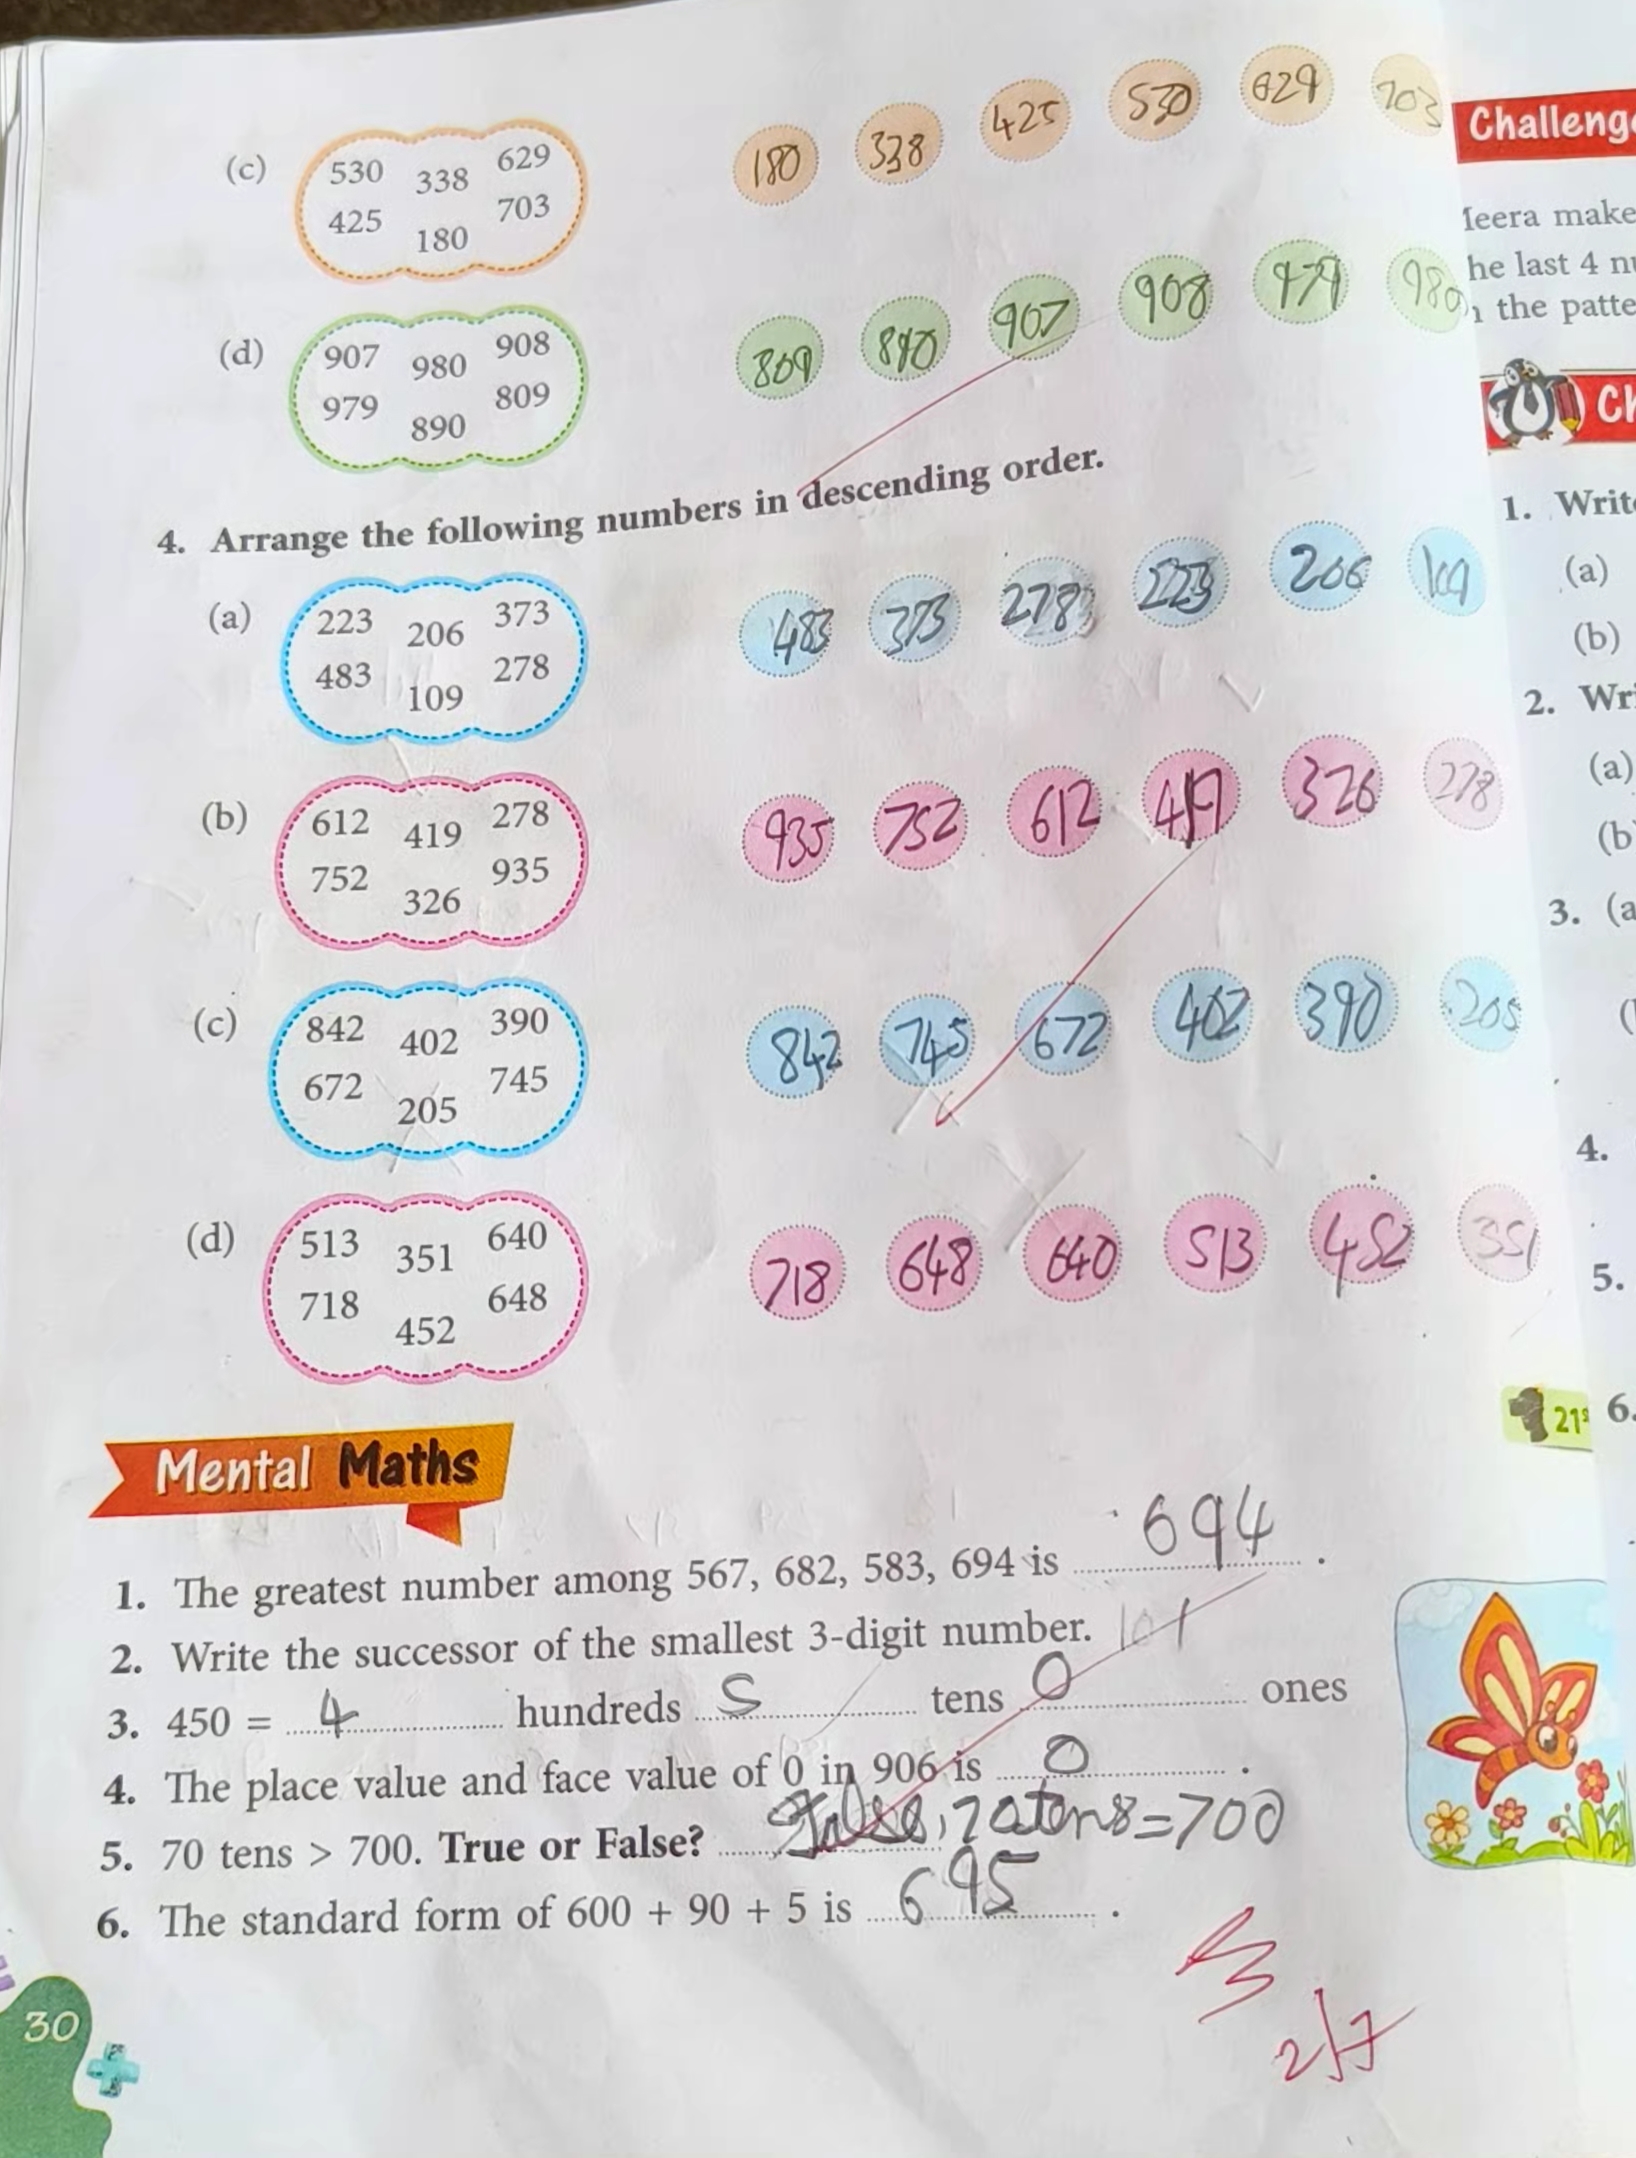 (c) 530 338 629 425 180 703
180 338 425 530 629 703
(d) 907 980 908 979 890 809
809 890 907 908 979 980
4. Arrange the following numbers in descending order.
(a) 223 206 373 483 109 278
483 373 278 223 206 109
(b) 612 419 278 752 326 935
935 752 612 419 326 278
(c) 842 402 390 672 205 745
842 745 672 402 390 205
(d) 513 351 640 718 452 648
718 648 640 513 452 351
Mental Maths
1. The greatest number among 567, 682, 583, 694 is 694 .
2. Write the successor of the smallest 3-digit number. 101
3. 450 = 4 hundreds 5 tens 0 ones
4. The place value and face value of 0 in 906 is 0 .
5. 70 tens > 700. True or False? False, 70 tens = 700
6. The standard form of 600 + 90 + 5 is 695 .
2/7
30
Challeng
make
he last 4
the patte
1. Writ
(a)
(b)
2. Wr
(a)
(b
3. (a
4.
5.
21s 6.